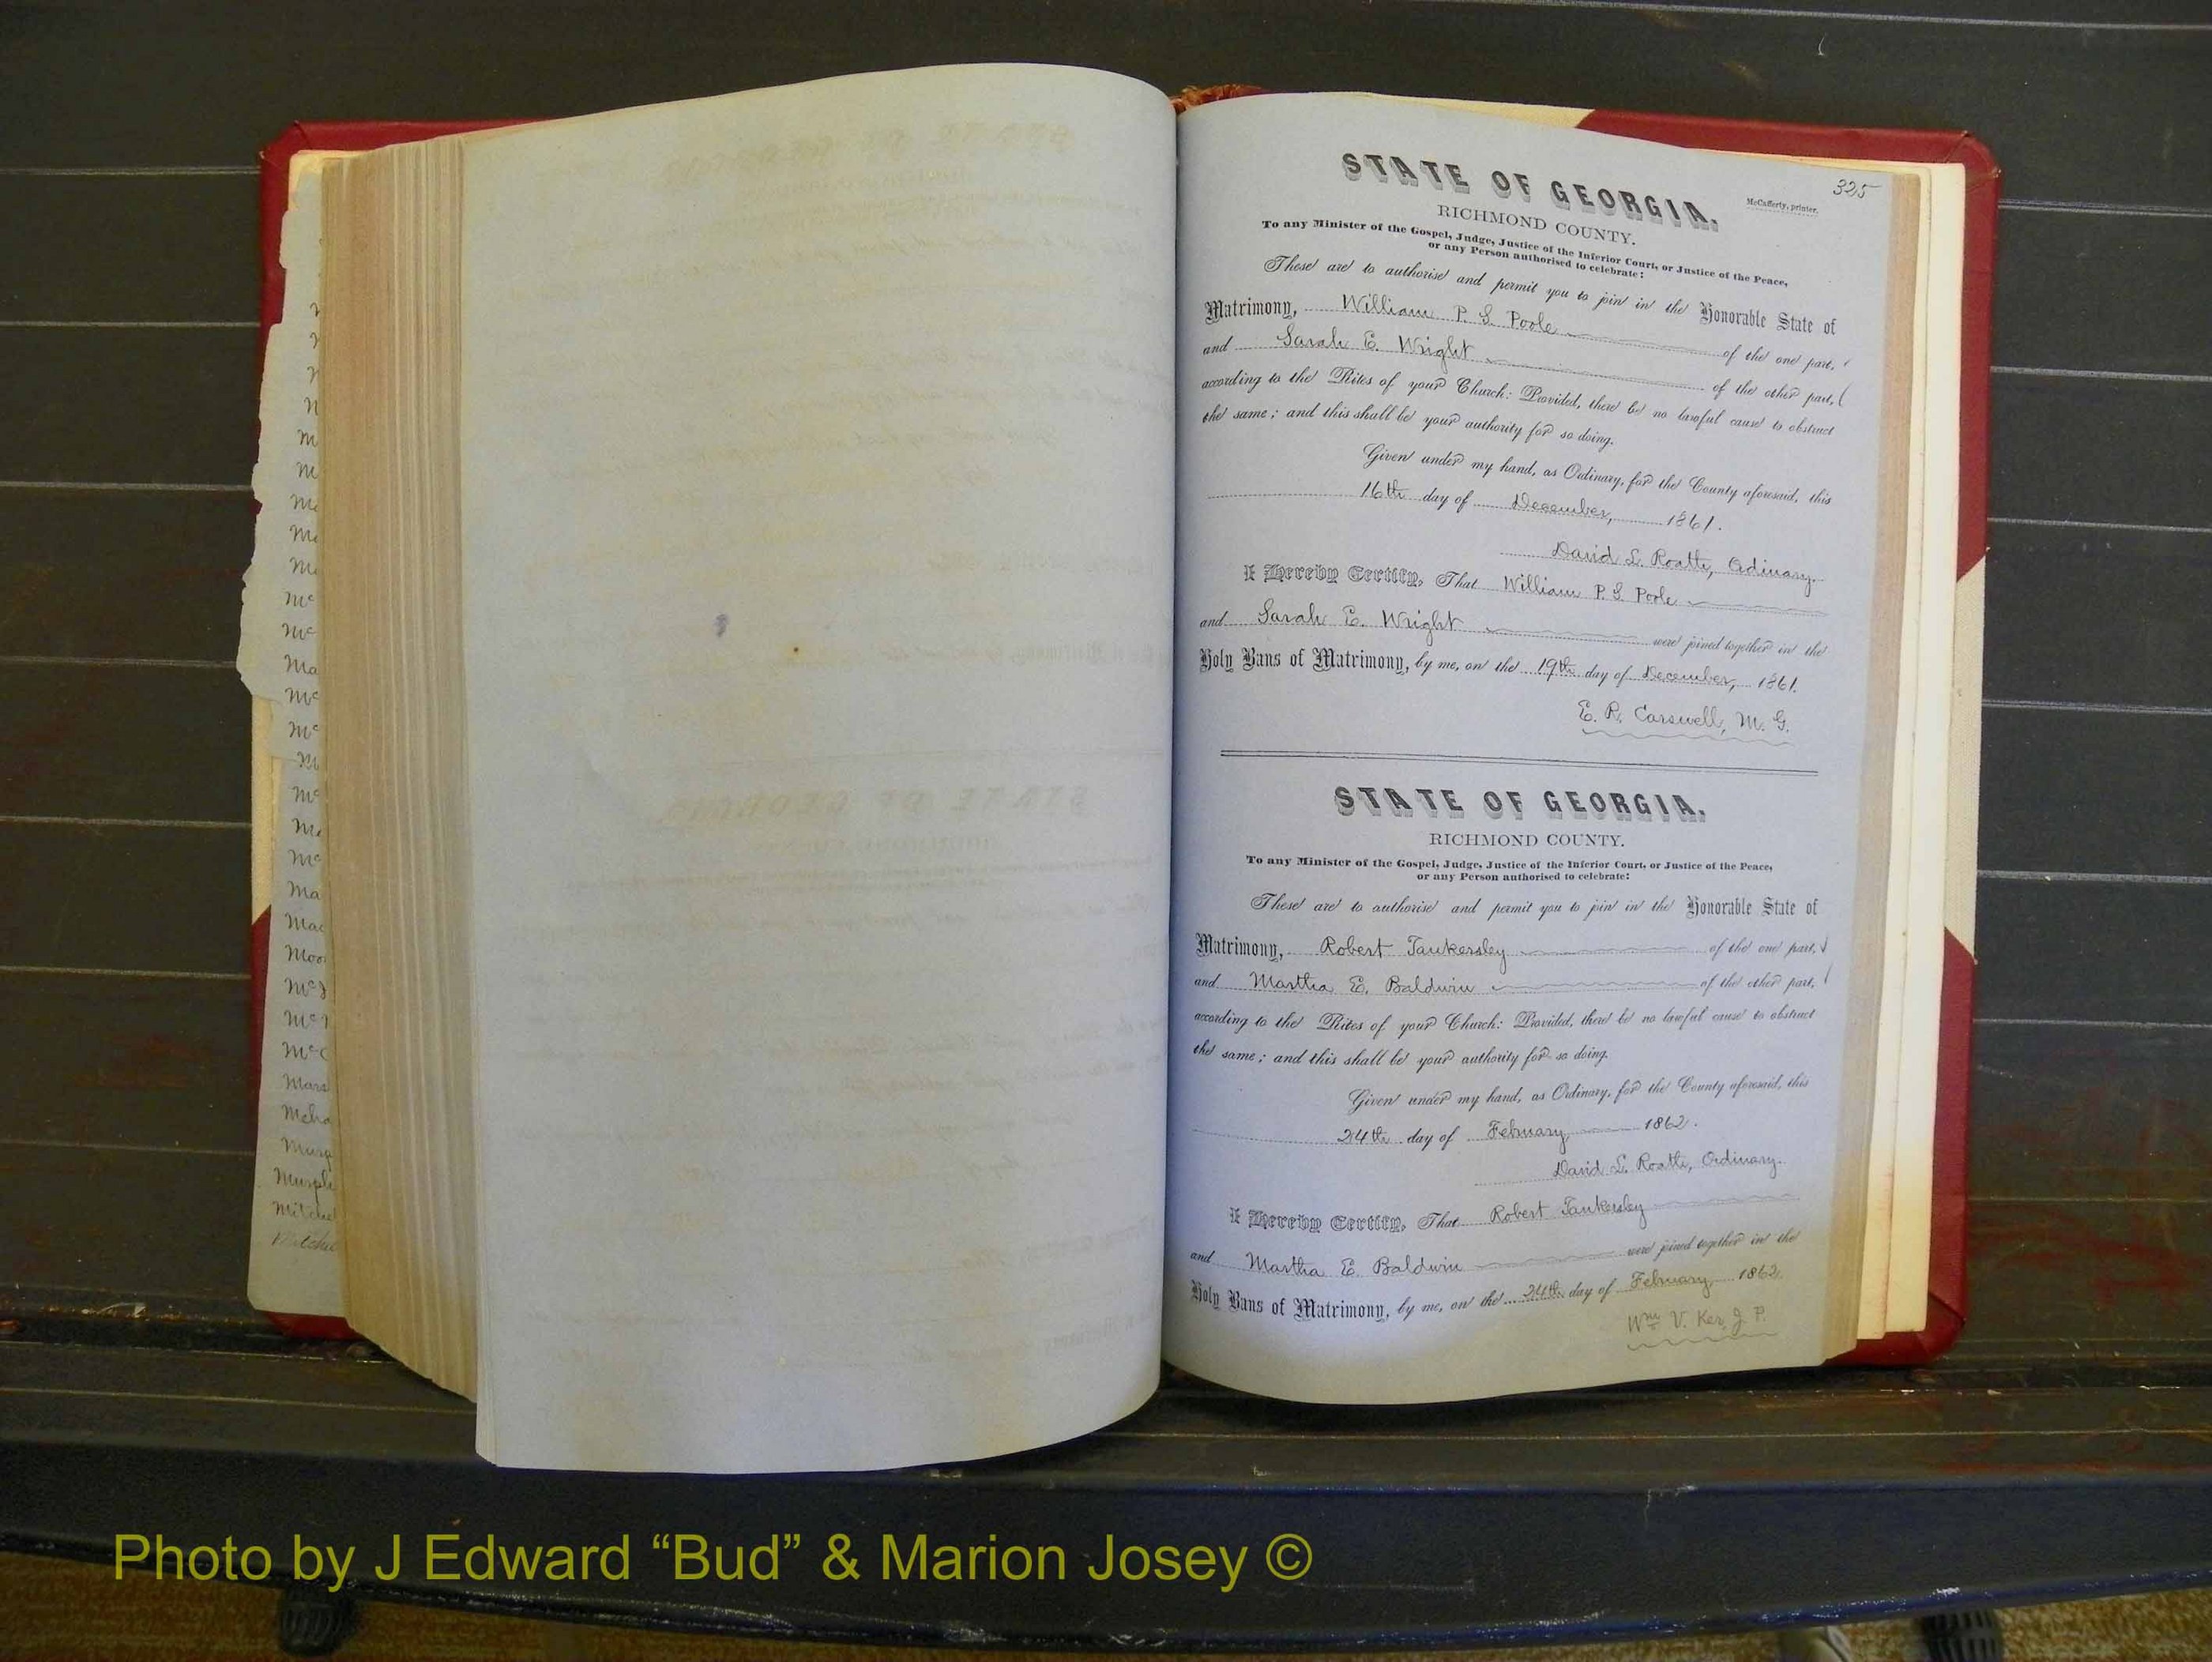 325
STATE OF GEORGIA.
McCafferty, printer.
RICHMOND COUNTY.
To any Minister of the Gospel, Judge, Justice of the Inferior Court, or Justice of the Peace,
or any Person authorised to celebrate:
These are to authorise and permit you to join in the Honorable State of
Matrimony, William P. S. Poole of the one part,
and Sarah E. Wright of the other part,
according to the Rites of your Church: Provided, there be no lawful cause to obstruct
the same; and this shall be your authority for so doing.
Given under my hand, as Ordinary, for the County aforesaid, this
16th day of December, 1861.
David L. Roath, Ordinary.
I Hereby Certify, That William P. S. Poole
and Sarah E. Wright were joined together in the
Holy Bans of Matrimony, by me, on the 19th day of December, 1861.
E. R. Carswell, M. G.
STATE OF GEORGIA.
RICHMOND COUNTY.
To any Minister of the Gospel, Judge, Justice of the Inferior Court, or Justice of the Peace,
or any Person authorised to celebrate:
These are to authorise and permit you to join in the Honorable State of
Matrimony, Robert Tankersley of the one part,
and Martha E. Baldwin of the other part,
according to the Rites of your Church: Provided, there be no lawful cause to obstruct
the same; and this shall be your authority for so doing.
Given under my hand, as Ordinary, for the County aforesaid, this
24th day of February 1862.
David L. Roath, Ordinary.
I Hereby Certify, That Robert Tankersley
and Martha E. Baldwin were joined together in the
Holy Bans of Matrimony, by me, on the 24th day of February 1862.
Wm V. Ker, J. P.
Photo by J Edward “Bud” & Marion Josey ©